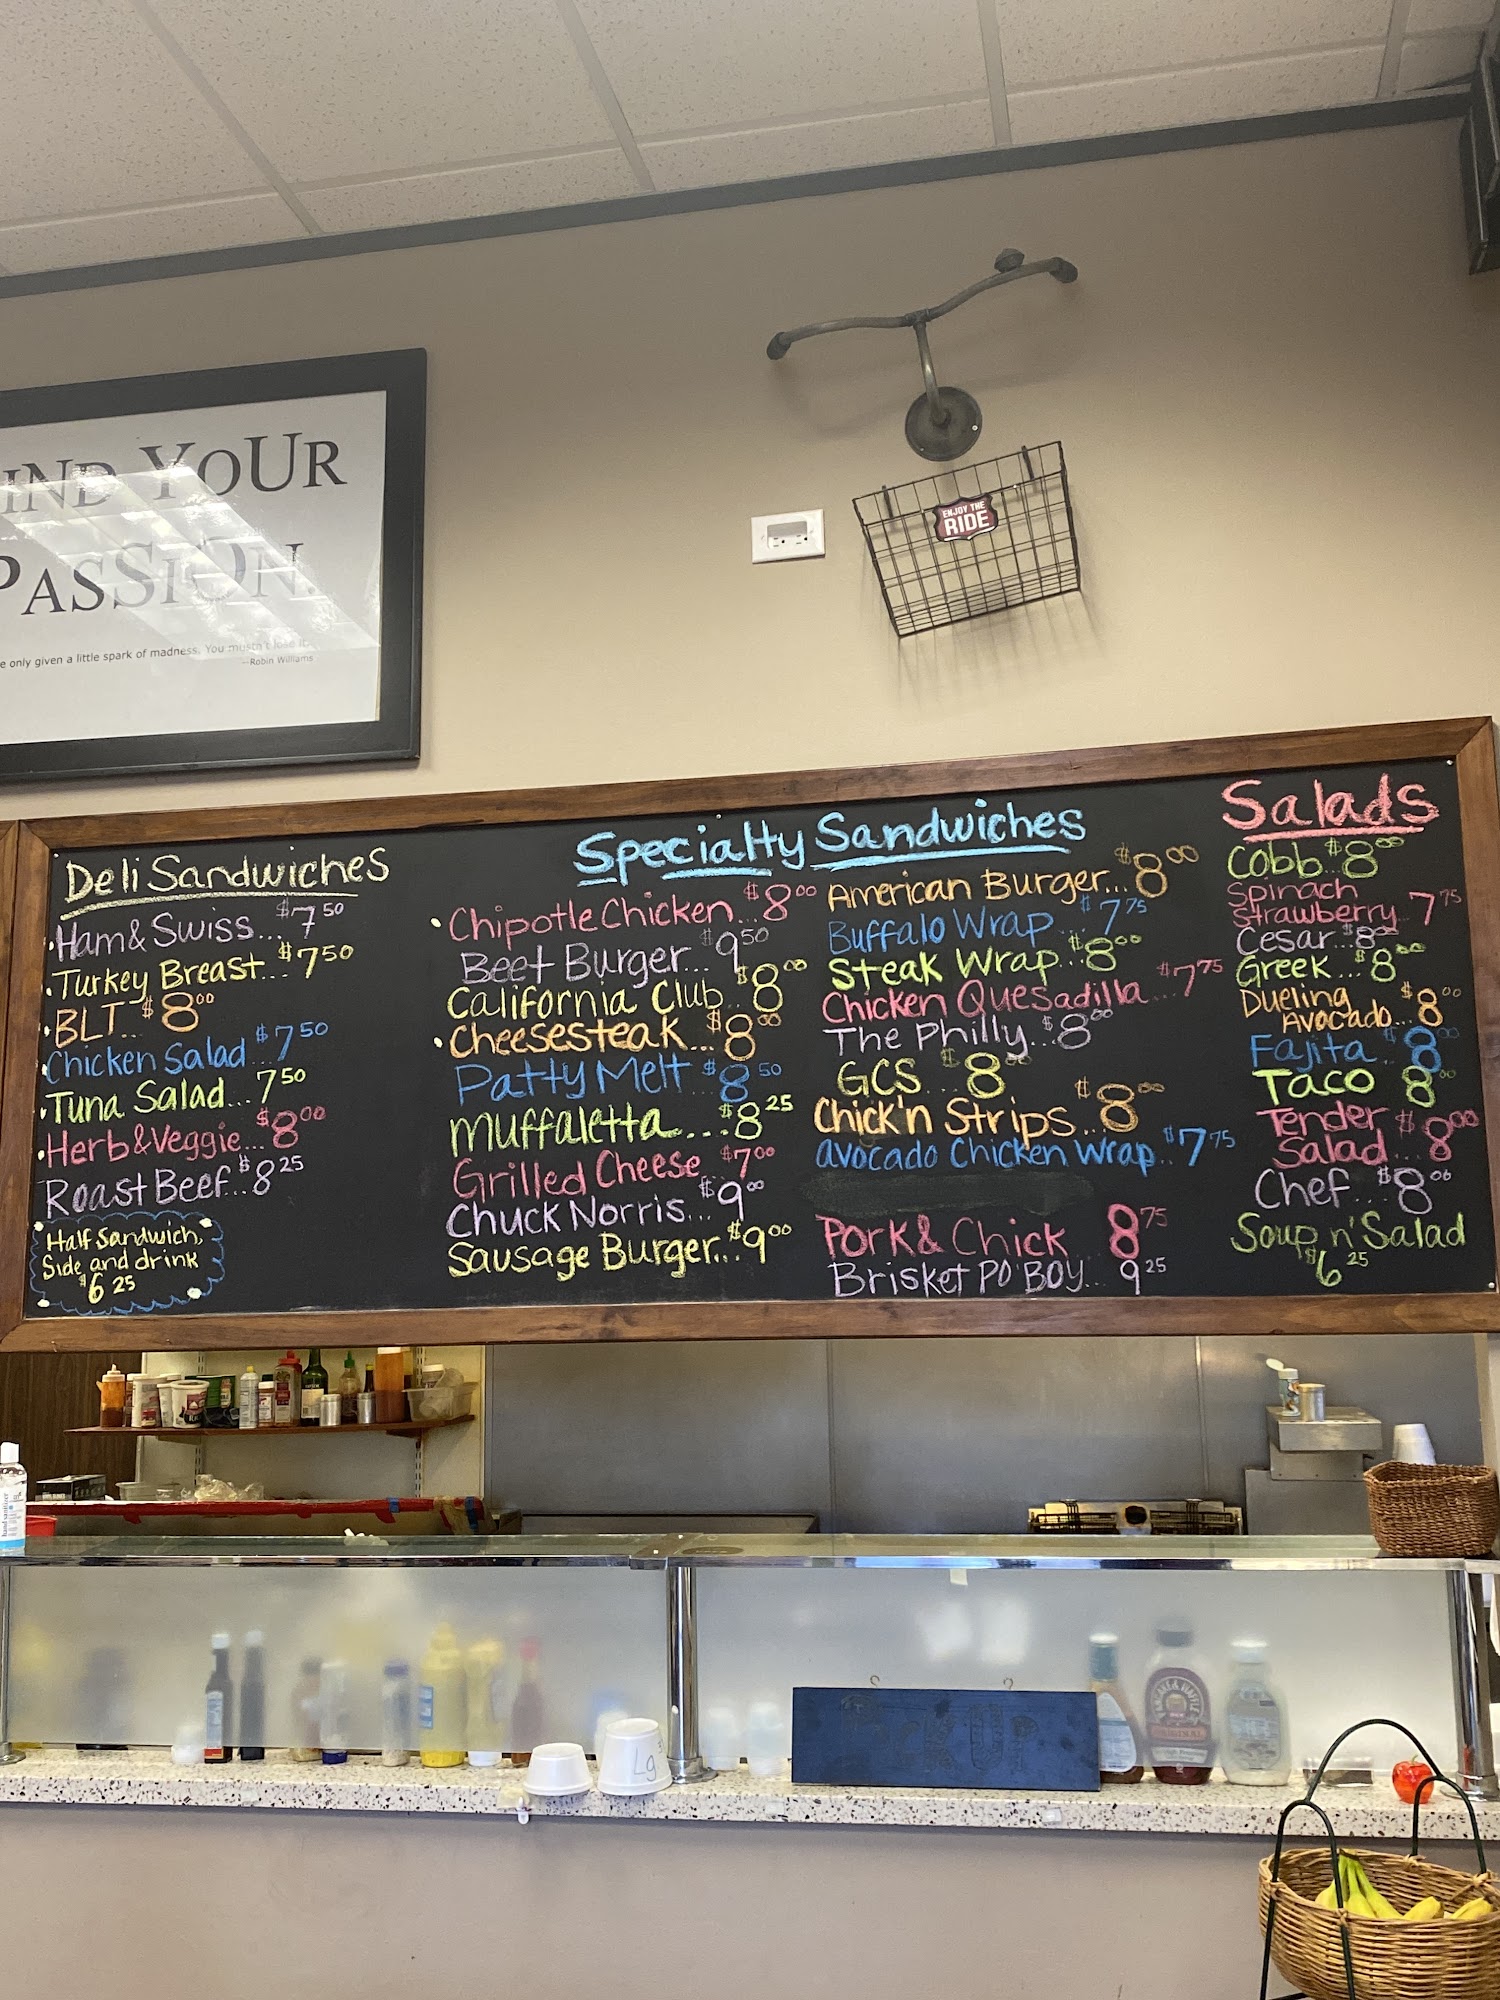 IND YOUR
PASSION
e only given a little spark of madness. You mustn't lose it.
--Robin Williams
ENJOY THE
RIDE
Deli Sandwiches
Ham & Swiss... $7.50
Turkey Breast... $7.50
BLT... $8.00
Chicken Salad... $7.50
Tuna Salad... 7.50
Herb & Veggie... $8.00
Roast Beef... $8.25
Half Sandwich,
Side and drink
$6.25
Specialty Sandwiches
Chipotle Chicken... $8.00
Beet Burger... $9.50
California Club... $8.00
Cheesesteak... $8.00
Patty Melt $8.50
Muffaletta... $8.25
Grilled Cheese... $7.00
Chuck Norris... $9.00
Sausage Burger... $9.00
American Burger... $8.00
Buffalo Wrap... $7.75
Steak Wrap... $8.00
Chicken Quesadilla... $7.75
The Philly... $8.00
GCS... $8.00
Chick'n Strips... $8.00
Avocado Chicken Wrap... $7.75
Pork & Chick 8.75
Brisket Po'Boy... 9.25
Salads
Cobb... $8.00
Spinach
Strawberry... 7.75
Cesar... $8.00
Greek... $8.00
Dueling
Avocado... $8.00
Fajita... $8.00
Taco 8.00
Tender
Salad... $8.00
Chef... $8.00
Soup n' Salad
$6.25
hand sanitizer
Lg
ORIGINAL